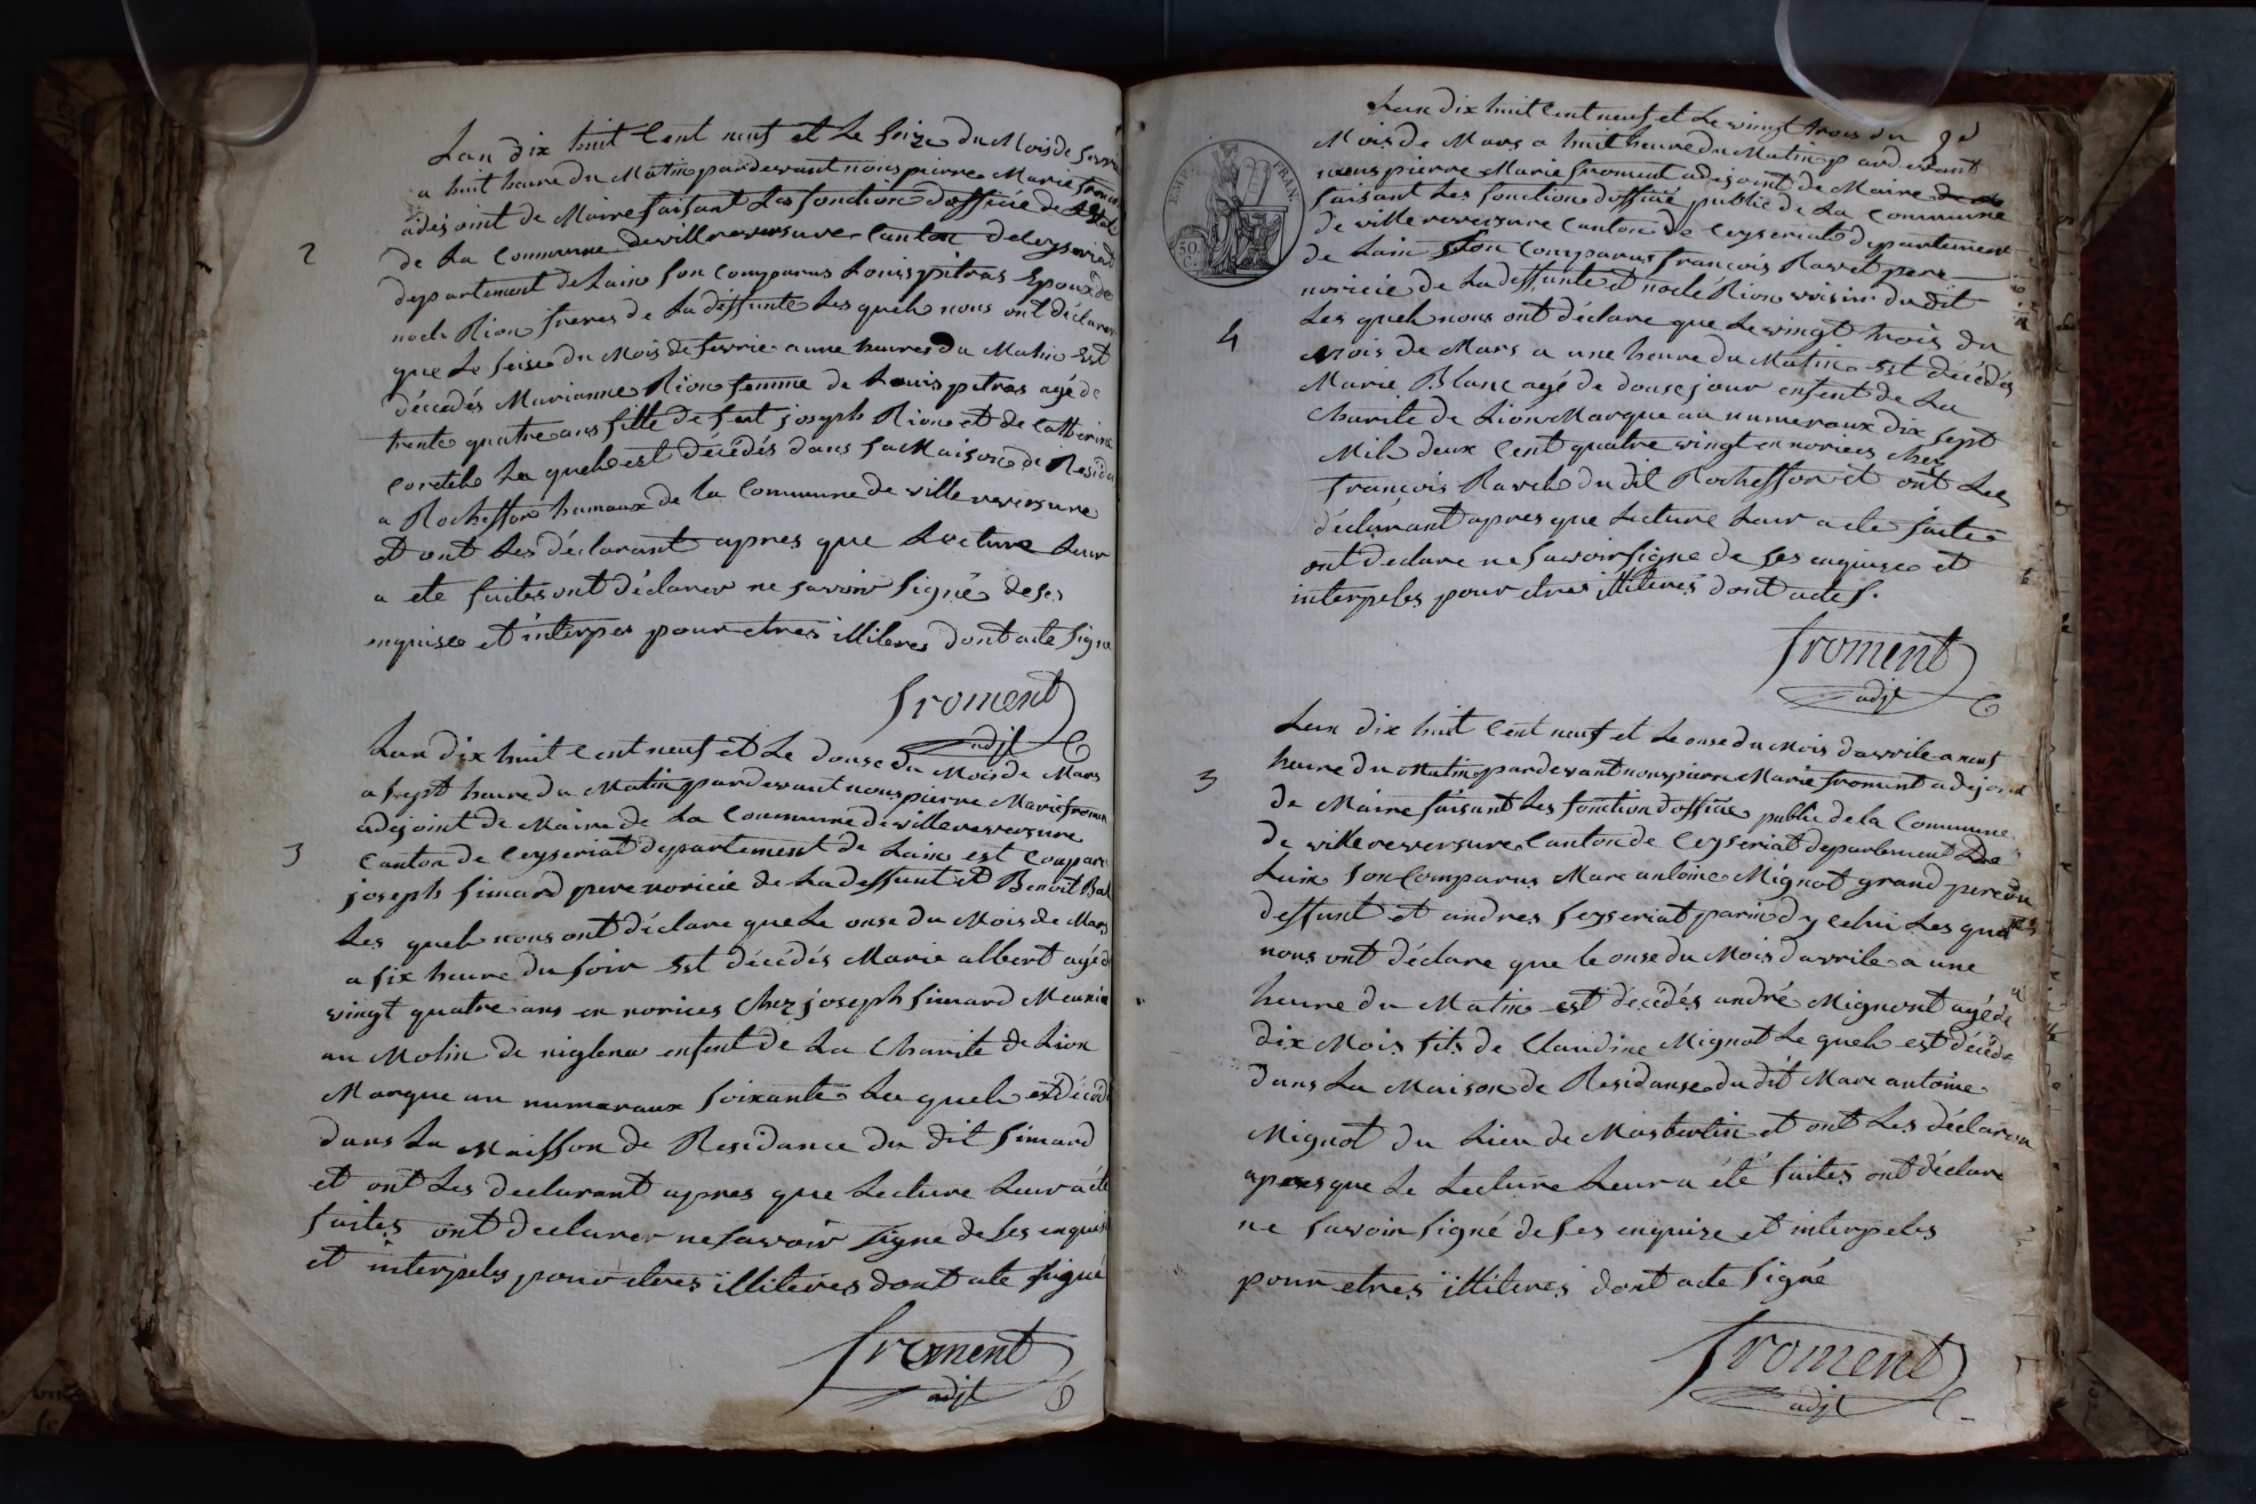 Lan dix huit Cent neuf et Le seize du Mois de fevri
a huit heure du Matin pardevant nous pierre Marie fromen
adejoint de Maire faisant Les fonction dofficié de
de La Commune de villereversure Canton de Ceyseriat
2
departement de Lain son Comparus Louis pitras Epoux de
noele Rion freres de La deffunte Les quels nous ont déclarer
que Le seise du Mois de fevrie a une heures du Matin est
décedés Marianne Rion femme de Louis pitras agé de
trente quatre ans fille de feut joseph Rion et de Catherine
La quele est décédés dans sa Maison de Resida
a Rocheffor hamaux de la Commune de villereversure
et ont Les déclarant apres que Lecture Leur
a ete faites ont déclarer ne savoir signé de ses
enquise et interpes pour etres illiteres dont acte signe
froment
adjt
Lan dix huit Cent neuf et Le douse du Mois de Mars
a sept heure du Matin pardevant nous pierre Marie fromen
adejoint de Maire de La Commune de villereversure
Canton de Ceyseriat departement de Lain est Compare
3
joseph simard pere noricié de La deffunt et Benoit
Les quels nous ont déclare que Le onse du Mois de Mars
a six heure du soir est décédés Marie albert agé d
vingt quatre ans en norices Chez joseph simard Meunie
au Molin de enfent de La Charite de Lion
Marque au numeraux soixante La quele est décéd
dans La Maisson de Residance du dit simard
et ont Les declarant apres que Lecture Leur a été
faites ont declarer ne savoir signe de ses enquis
et interpeles pour etres illiteres dont ate signé
froment
adjt
Lan dix huit Cent neuf et Le vingt trois du
Mois de Mars a huit heure du Matin pardevant
nous pierre Marie froment adejoint de Maire
EMP. FRAN.
50 C.
faisant Les fonction dofficié public de La Commune
de villereversure Canton de Ceyseriat departement
de Lain son Comparus françois Ravet pere
noricié de La deffunte et noelé Rion voisin du dit
Les quels nous ont déclare que Le vingt trois du
4
Mois de Mars a une heure du Matin est décédés
Marie Blanc agé de douse jour enfent de La
Charite de Lion Marque au numeraux dix sept
Mile deux Cent quatre vingt en norices chez
françois Ravet du dit Rocheffor et ont Les
déclarant apres que Lecture Leur a ete faites
ont declare ne savoir signe de ses enquise et
interpeles pour etres illiteres dont acte s.
froment
adjt
Lan dix huit Cent neuf et Le onse du Mois davrile a neuf
heure du Matin pardevant nous pierre Marie froment adejoint
de Maire faisant Les fonction dofficié public de la Commune
de villereversure Canton de Ceyseriat departement de
Lain son Comparus Marc antoine Mignot grand pere du
deffunt et andres seyseriat parin dy Celui Les quels
nous ont déclare que le onse du Mois davrile a une
heure du Matin est décédés andré Mignont agé de
dix Mois fils de Claudine Mignot Le quele est décéde
dans La Maison de Residanse du dit Marc antoine
Mignot du Lieu de et ont Les déclaran
apres que Le Lecture Leur a été faites ont déclare
ne savoir signé de ses enquise et interpeles
pour etres illiteres dont acte signé
froment
adjt